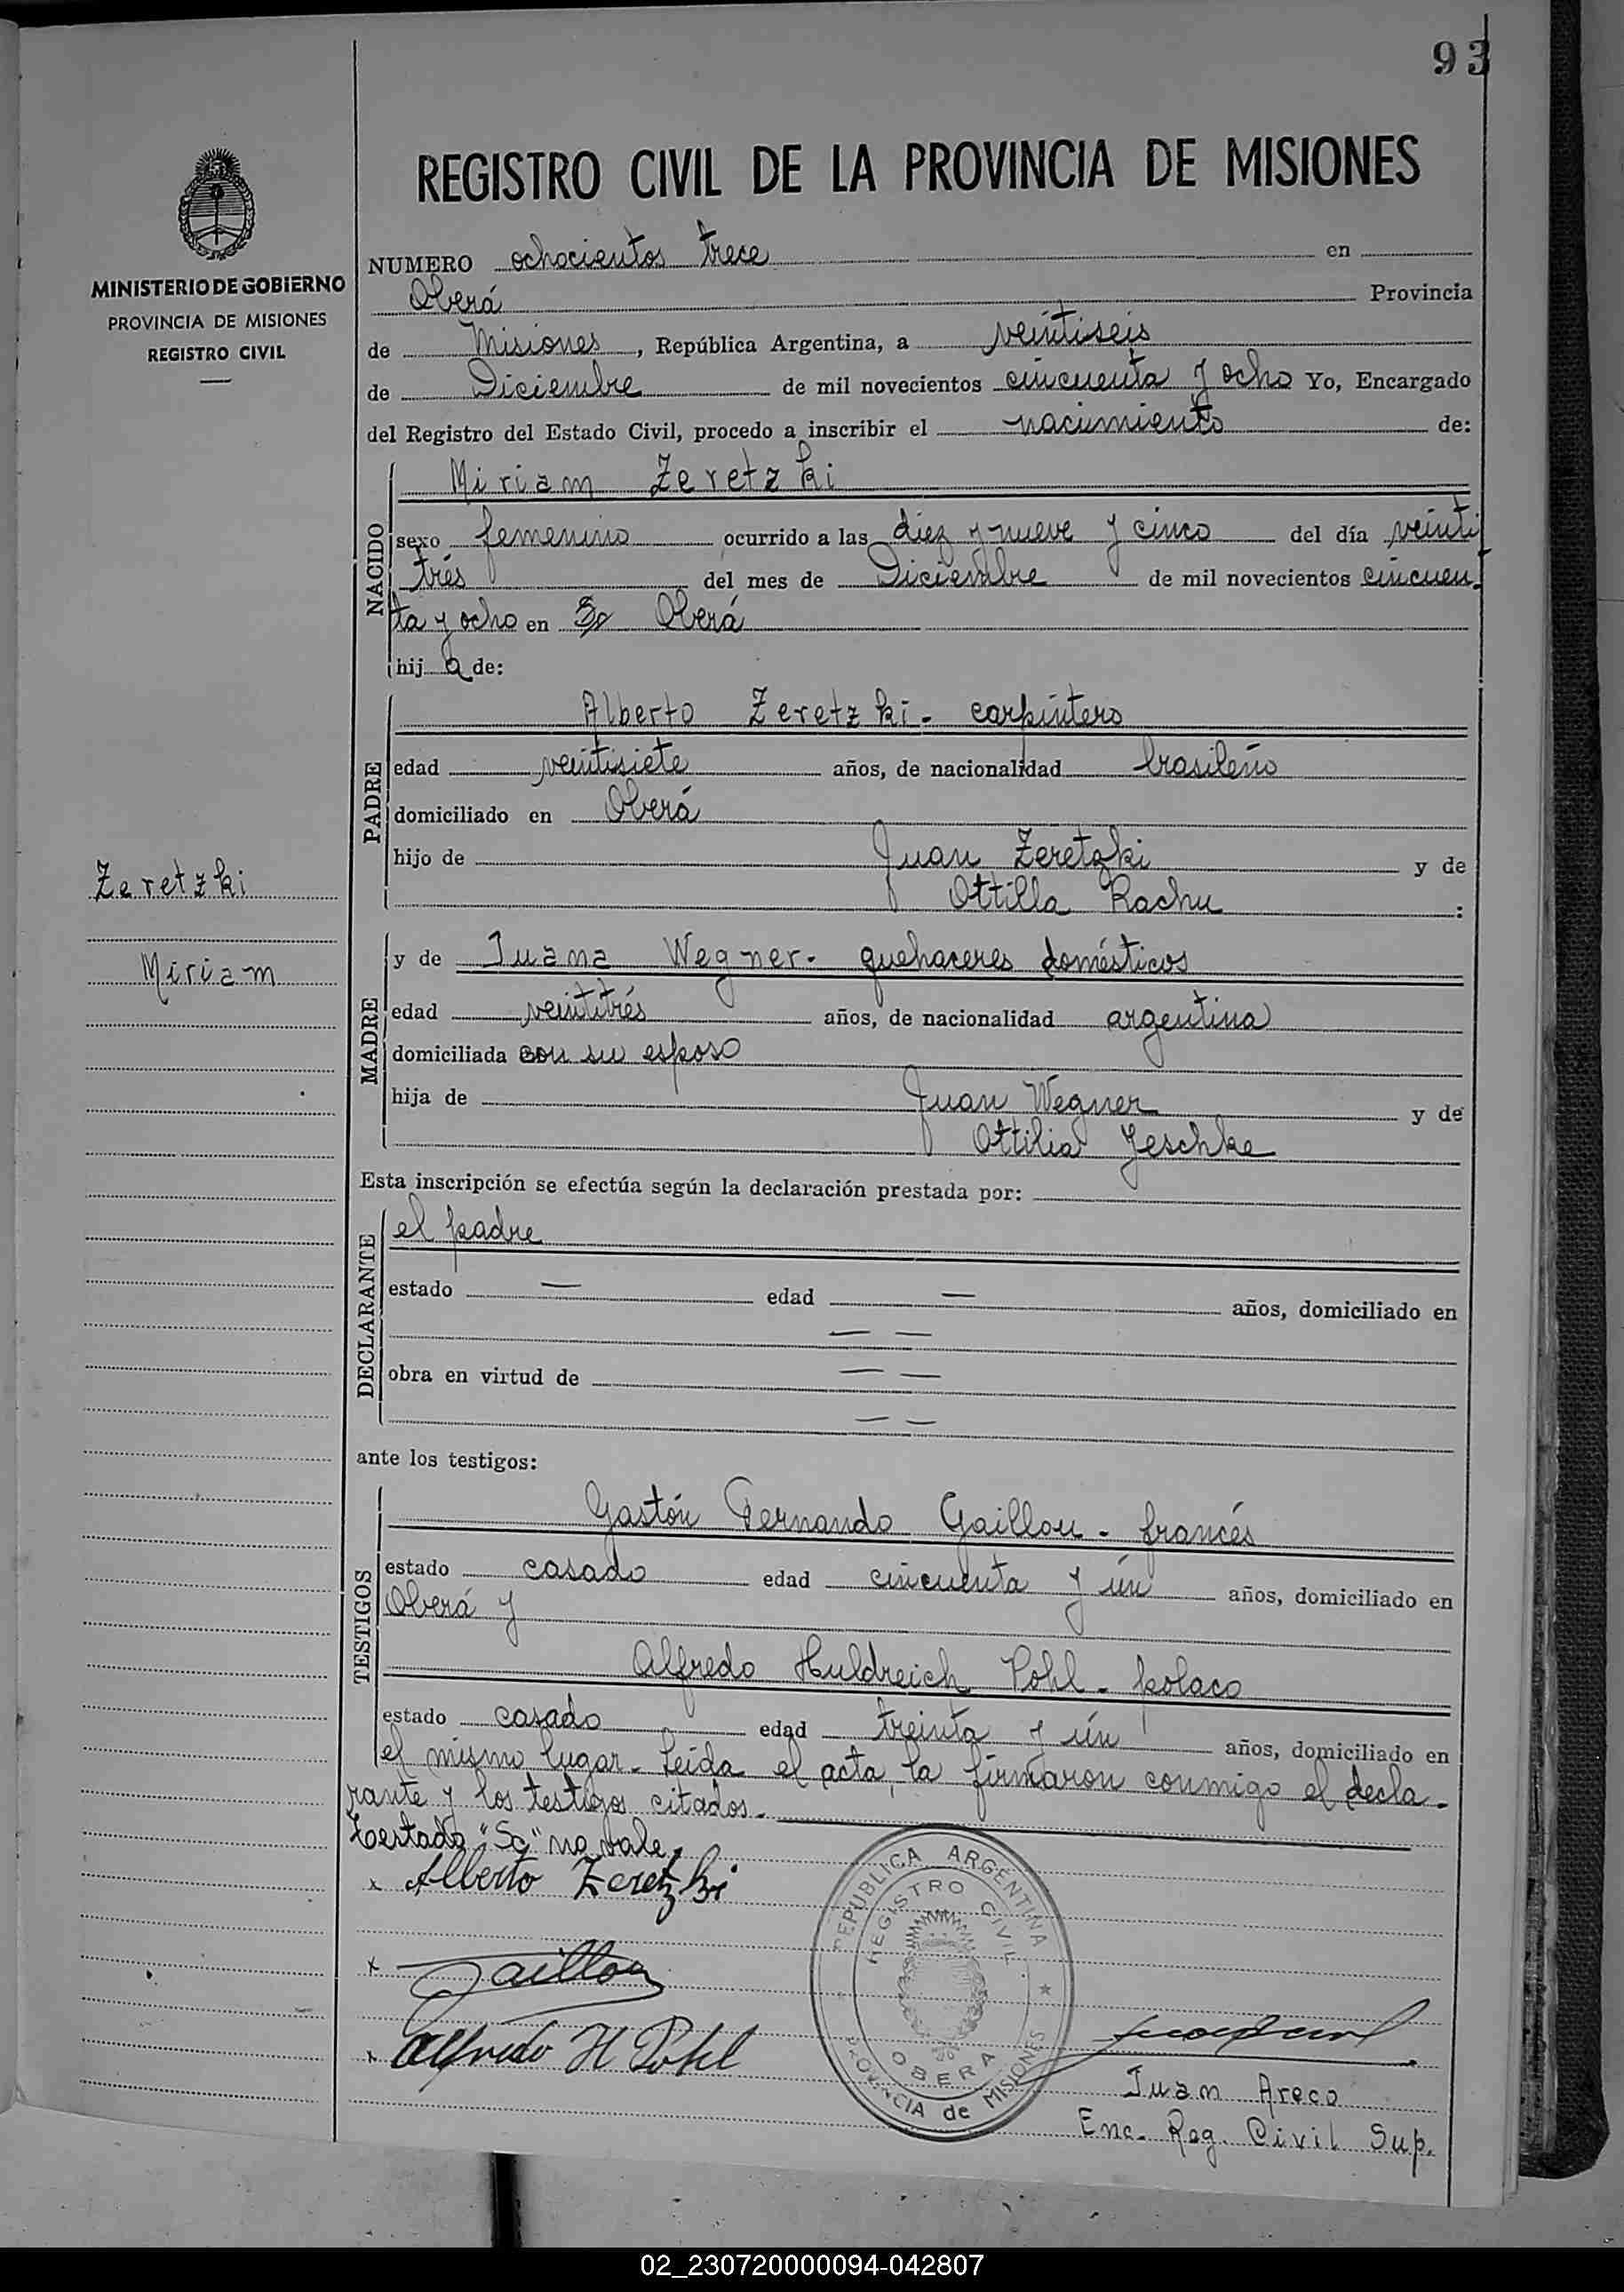 93
REGISTRO CIVIL DE LA PROVINCIA DE MISIONES
MINISTERIO DE GOBIERNO
PROVINCIA DE MISIONES
REGISTRO CIVIL
NUMERO ochocientos trece en
Oberá Provincia
de Misiones, República Argentina, a veintiseis
de Diciembre de mil novecientos cincuenta y ocho Yo, Encargado
del Registro del Estado Civil, procedo a inscribir el nacimiento de:
NACIDO
Miriam Zeretzki
sexo femenino ocurrido a las diez y nueve y cinco del día veinti
trés del mes de Diciembre de mil novecientos cincuen
ta y ocho en Oberá
hij a de:
PADRE
Alberto Zeretzki - carpintero
edad veintisiete años, de nacionalidad brasileño
domiciliado en Oberá
hijo de Juan Zeretzki y de
Ottilla Rachu :
Zeretzki
Miriam
MADRE
y de Juana Wegner - quehaceres domésticos
edad veintitrés años, de nacionalidad argentina
domiciliada con su esposo
hija de Juan Wegner y de
Ottilia Jeschke
Esta inscripción se efectúa según la declaración prestada por:
DECLARANTE
el padre
estado — edad — años, domiciliado en
— —
obra en virtud de — —
— —
ante los testigos:
TESTIGOS
Gastón Fernando Gaillou - francés
estado casado edad cincuenta y ún años, domiciliado en
Oberá y
Alfredo Huldreich Pohl - polaco
estado casado edad treinta y ún años, domiciliado en
el mismo lugar - Leida el acta, la firmaron conmigo el decla-
rante y los testigos citados -
Testado "So" no vale.
x Alberto Zeretzki
x Gaillou
x Alfredo H Pohl
REPUBLICA ARGENTINA
REGISTRO CIVIL
OBERA
PROVINCIA de MISIONES
Juan Areco
Enc. Reg. Civil Sup.
02_230720000094-042807